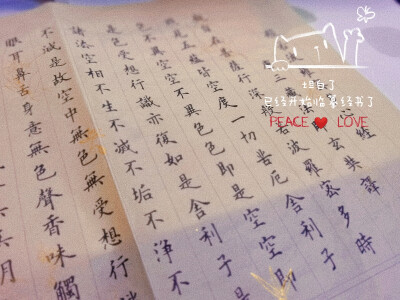 坦白了
已经开始临摹经书了
PEACE LOVE
經 玄奘譯
觀自在菩薩行深般若波羅蜜多時
照見五蘊皆空度一切苦厄舍利子
色不異空空不異色色即是空空即
是色受想行識亦復如是舍利子是
諸法空相不生不滅不垢不淨不
不滅是故空中無色無受想行
眼耳鼻舌身意無色聲香味觸